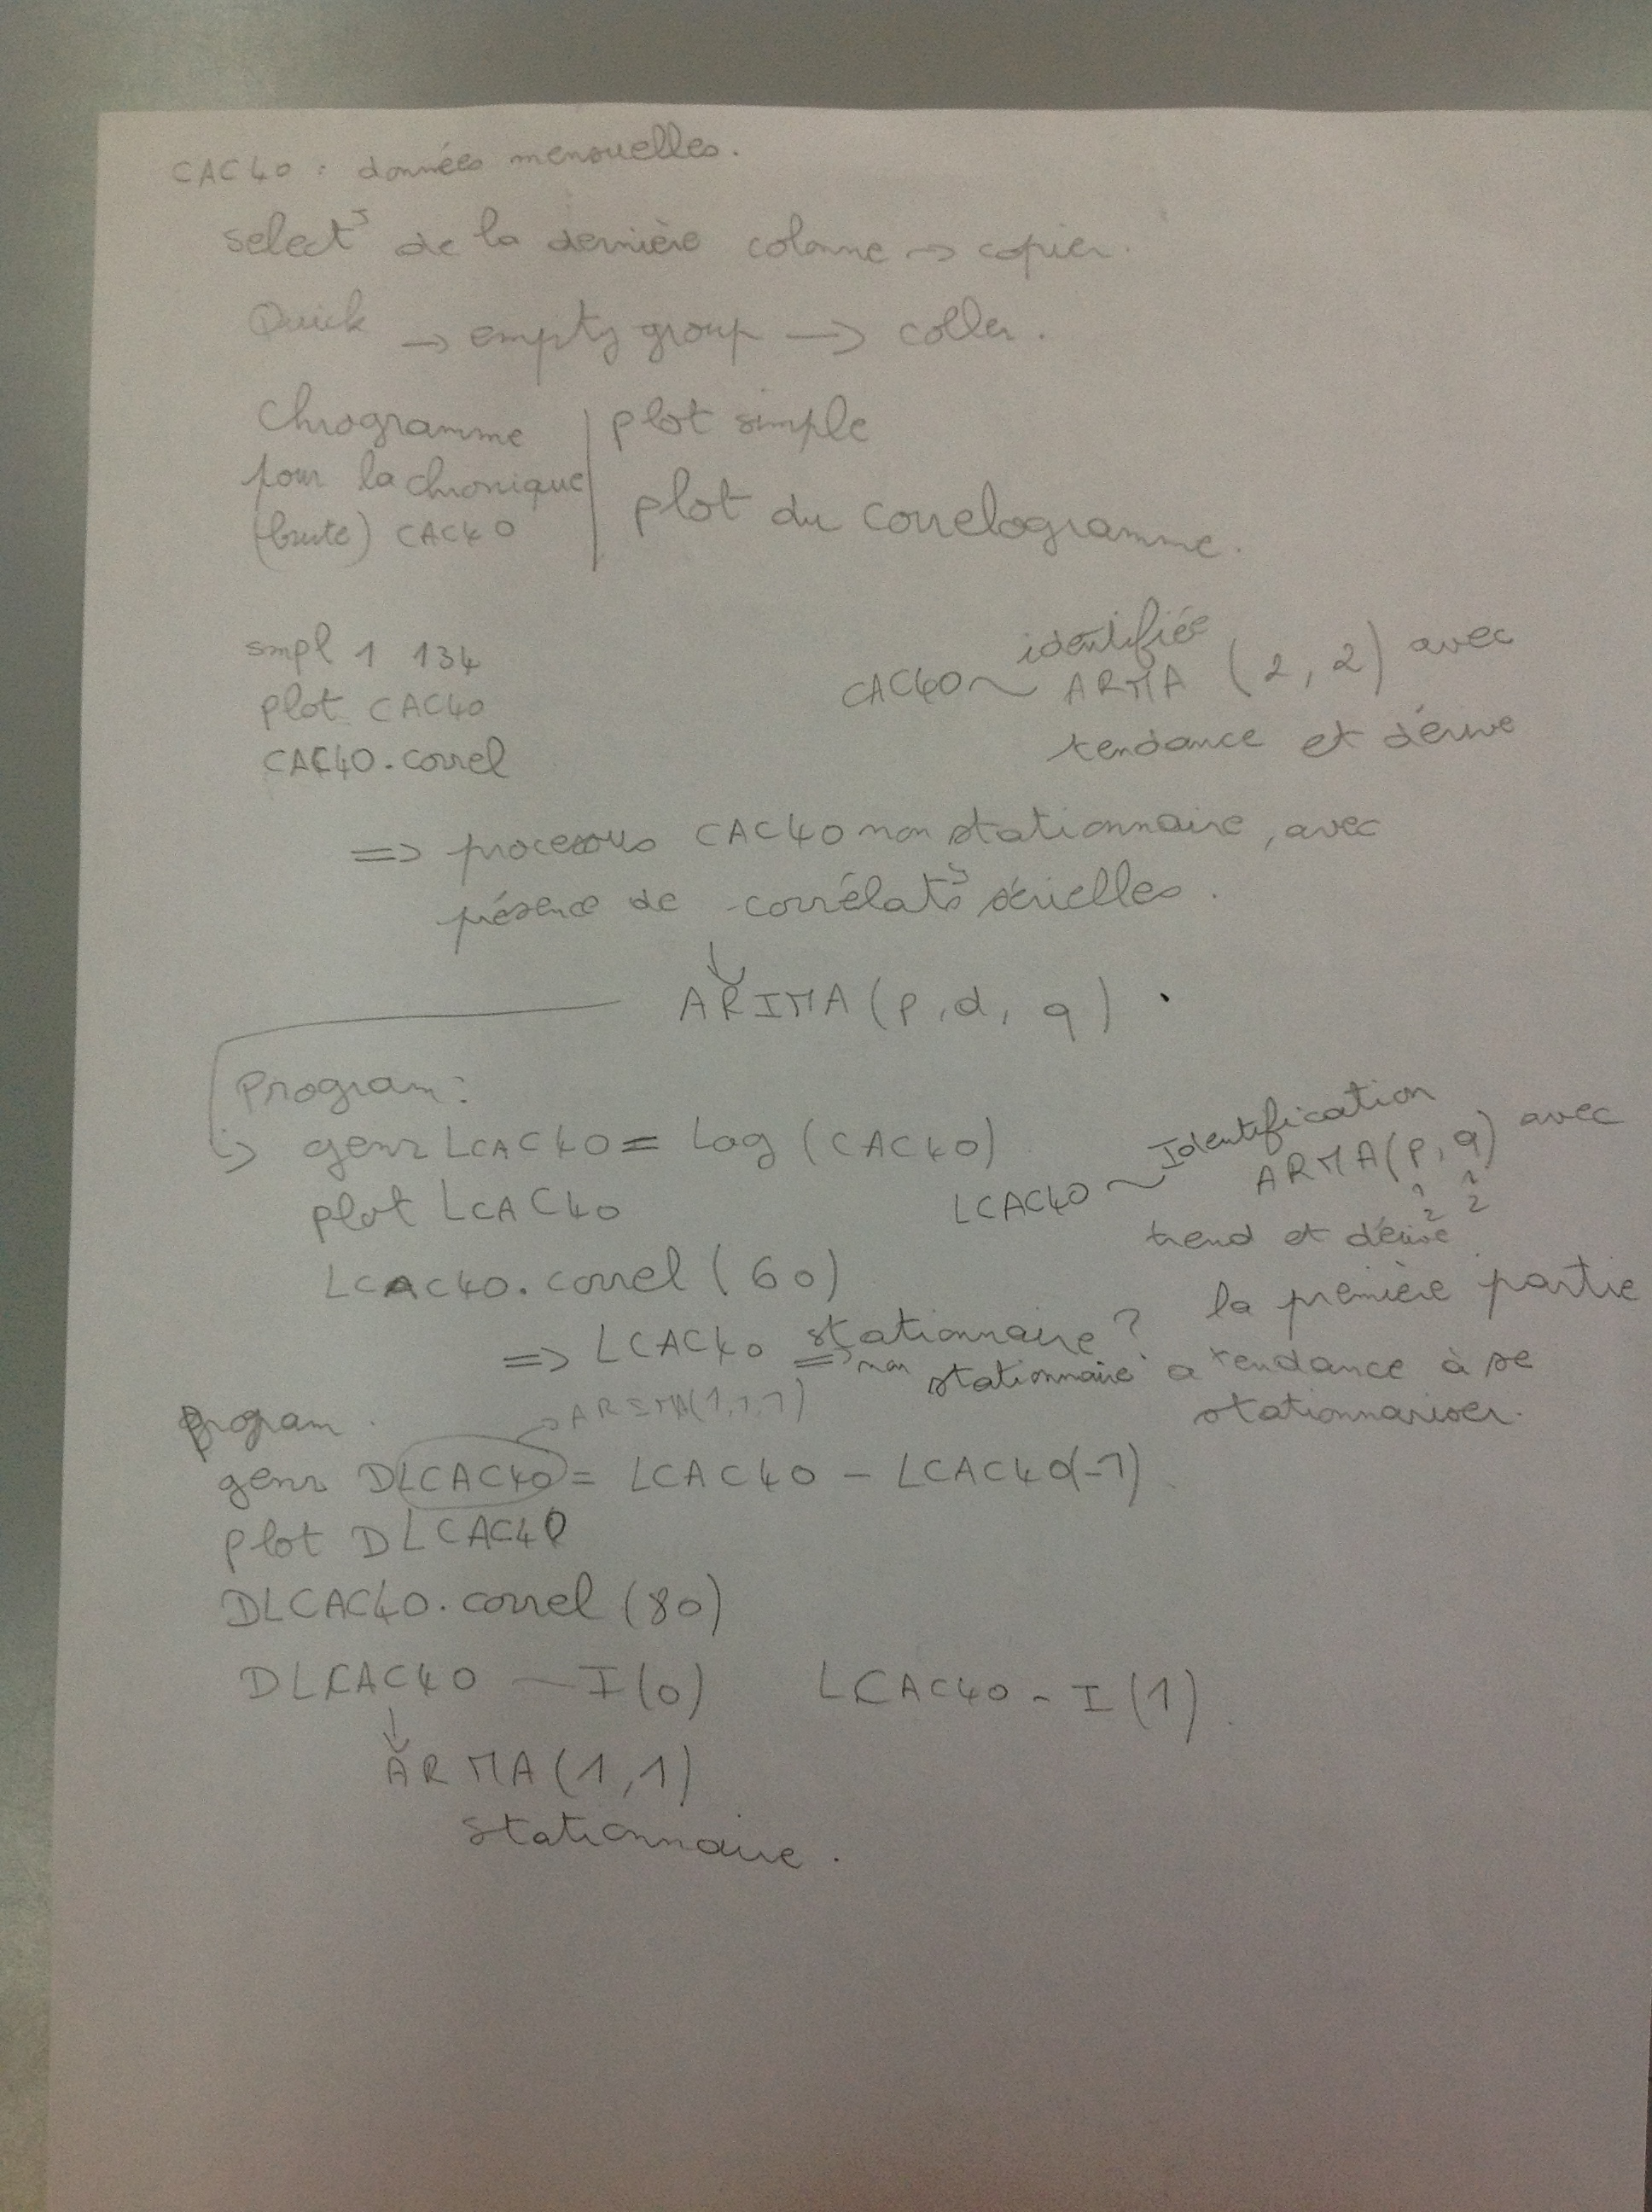 CAC40 : données mensuelles.
select° de la dernière colonne → copier.
Quick → empty group → coller.
Chrogramme | plot simple
pour la chronique
(brute) CAC40 | plot du correlogramme.
smpl 1 134
plot CAC40
CAC40.correl
CAC40 ~ identifiée
ARMA (2, 2) avec
tendance et dérive
=> processus CAC40 non stationnaire, avec
présence de corrélat° sérielles.
↓
ARIMA (p, d, q).
Program :
→ genr LCAC40 = Log (CAC40)
plot LCAC40
LCAC40.correl (60)
LCAC40 ~ Identification
ARMA(p, q) avec
2 2
trend et dérive
=> LCAC40 stationnaire ?
=> non stationnaire
la première partie
a tendance à se
stationnariser.
Program.
→ ARIMA(1,1,1)
genr DLCAC40 = LCAC40 - LCAC40(-1)
plot DLCAC40
DLCAC40.correl (80)
DLCAC40 ~ I(0) LCAC40 ~ I(1).
↓
ARMA(1,1)
stationnaire.